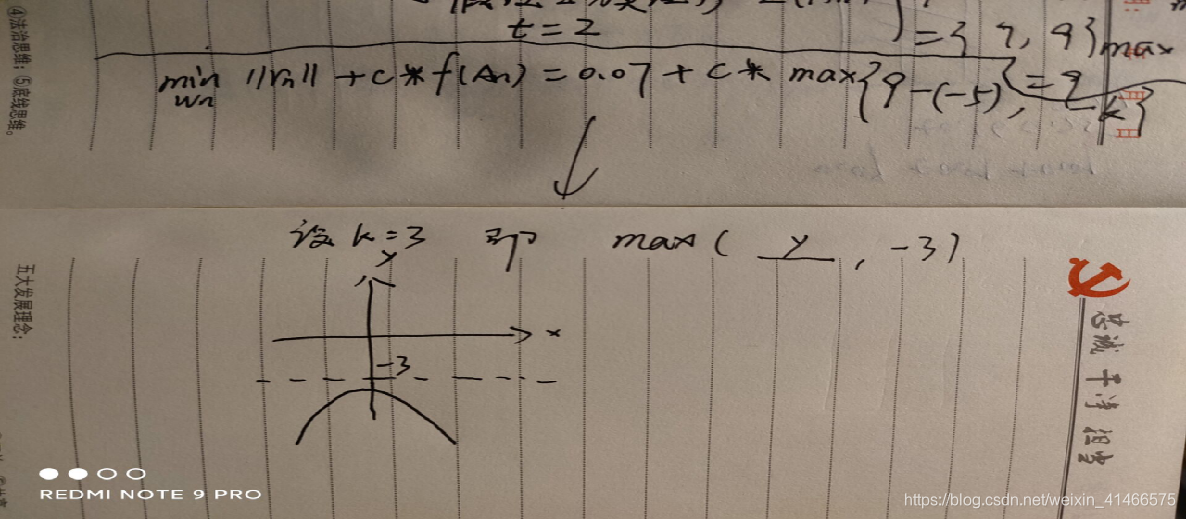 t = 2
= { 7, 9 } max
min ||rn|| + c * f(An) = 0.07 + c * max{ 9 - (-5), -k }
wn
= 9
设 k = 3 即 max( y , -3 )
y
x
-3
④法治思维 ⑤底线思维。
五大发展理念：
忠诚 干净 担当
REDMI NOTE 9 PRO
https://blog.csdn.net/weixin_41466575